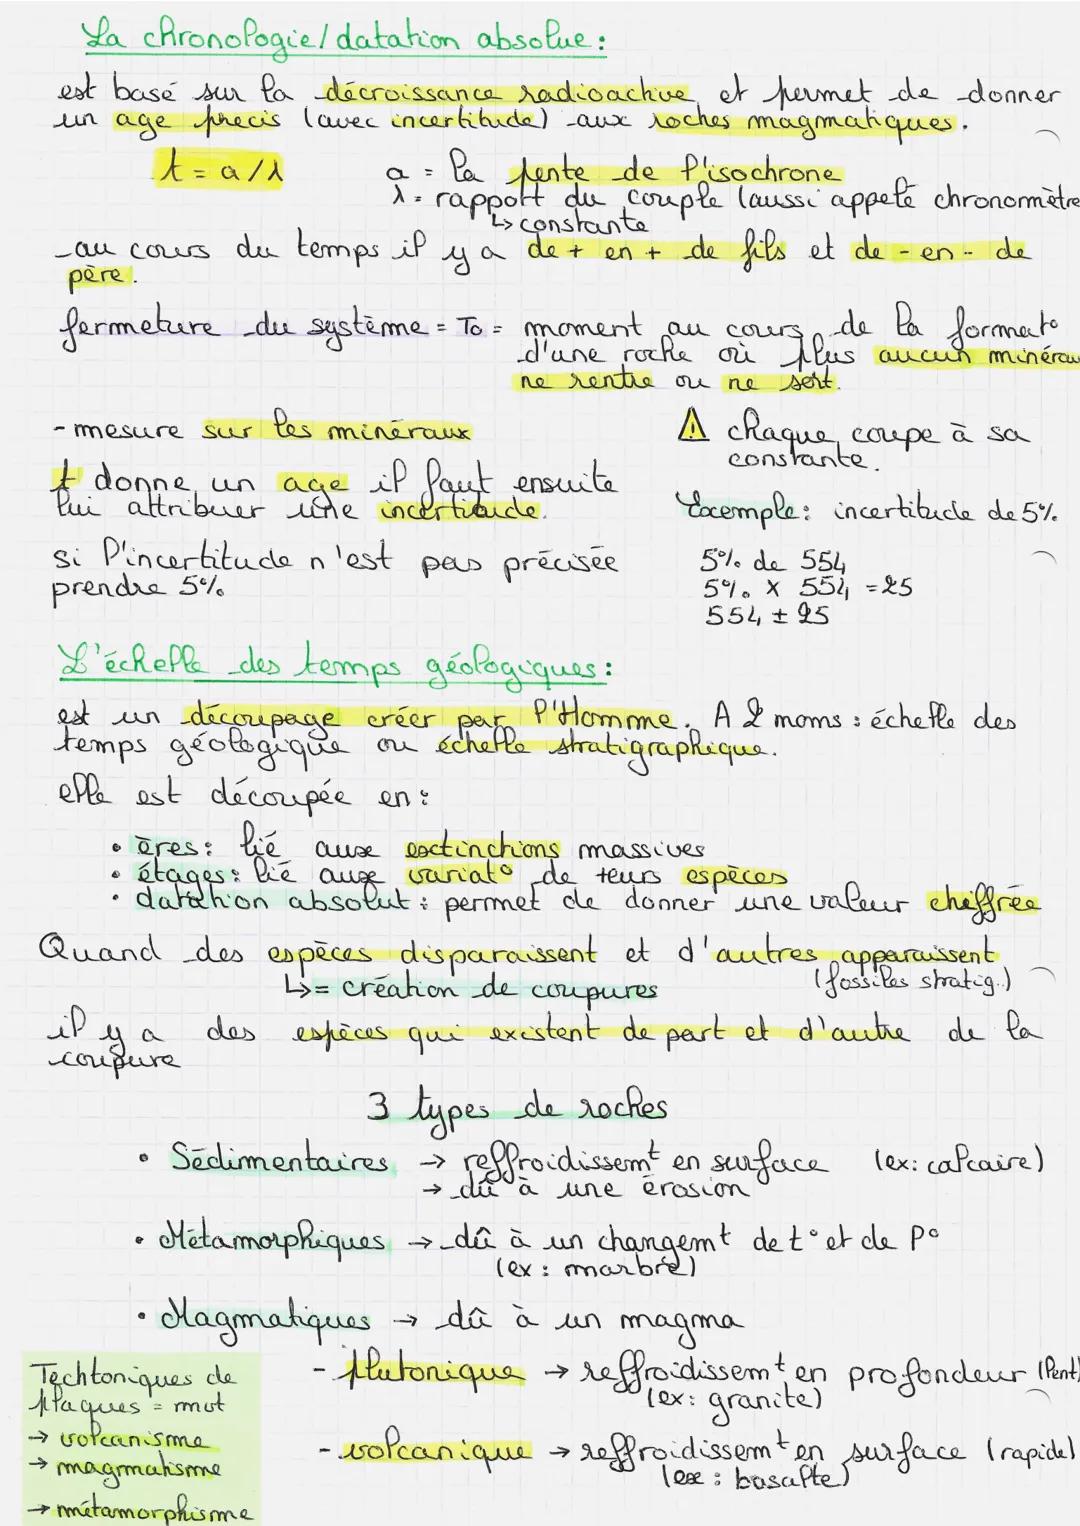 La chronologie/datation absolue :
est basé sur la décroissance radioactive et permet de donner
un age précis (avec incertitude) aux roches magmatiques.
t = a/λ
a = la pente de l'isochrone
λ = rapport du couple (aussi appelé chronormètre
↳ constante
au cours du temps il y a de + en + de fils et de - en - de
père.
fermeture du système = To = moment au cours de la format°
d'une roche où plus aucun minérau
ne rentre ou ne sort.
- mesure sur les minéraux
⚠ chaque coupe à sa
constante.
t donne un age il faut ensuite
lui attribuer une incertitude.
Exemple : incertitude de 5%
si l'incertitude n'est pas précisée
prendre 5%
5% de 554
5% x 554 = 25
554 ± 25
L'échelle des temps géologiques :
est un découpage créer par l'Homme. A 2 moms : échelle des
temps géologique ou échelle stratigraphique.
elle est découpée en :
• ères : lié aux extinctions massives
• étages : lié aux variat° de teurs espèces
• datation absolut : permet de donner une valeur chiffrée
Quand des espèces disparaissent et d'autres apparaissent
↳ = création de coupures
(fossiles stratig.)
il y a des espèces qui existent de part et d'autre de la
coupure
3 types de roches
• Sédimentaires → reffroidissemt en surface (ex : calcaire)
→ dû à une érosion
• Métamorphiques → dû à un changemt de t° et de P°
(ex : marbre)
• Magmatiques → dû à un magma
- plutonique → reffroidissemt en profondeur (lent)
(ex : granite)
- volcanique → reffroidissemt en surface (rapide)
(ex : basalte)
Techtoniques de
plaques = mvt
→ volcanisme
→ magmatisme
→ métamorphisme